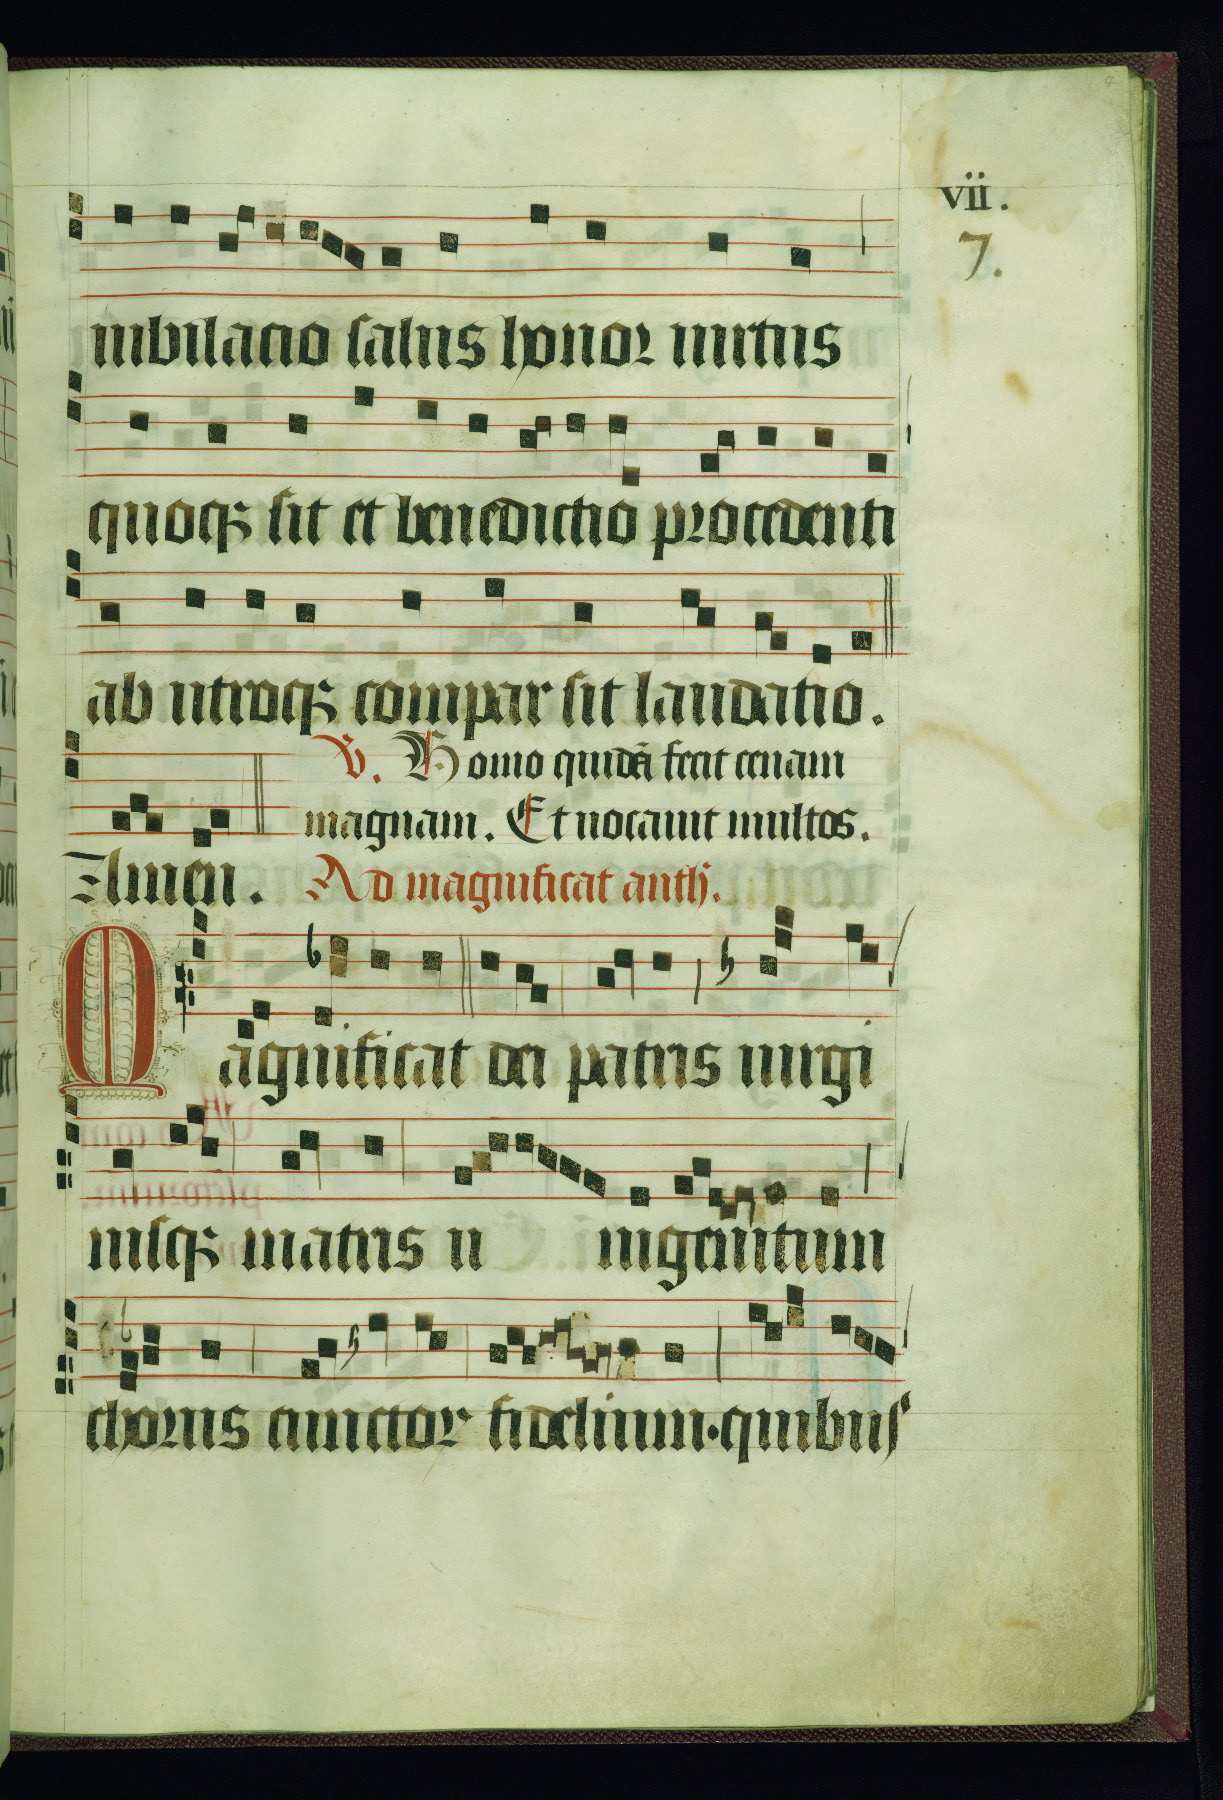 vii.
7.
iubilacio salus honor uirtus
quoqꝫ sit et benedictio procedenti
ab utroqꝫ compar sit laudatio.
V. Homo quidā fecit cenam
magnam. Et uocauit multos.
Amen. Ad magnificat anth.
Magnificat dei patris uirgi
nisqꝫ matris u nigenitum
chorus cunctor fidelium·quibus